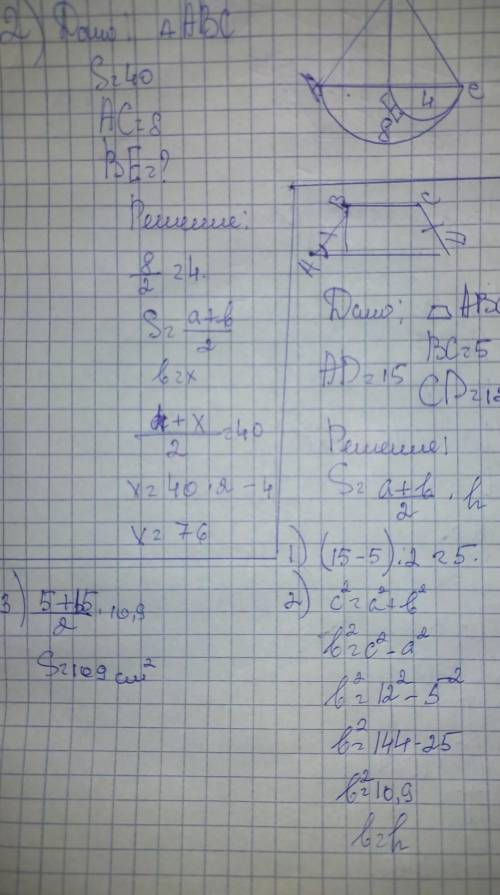 2) Дано: △ABC
S=40
AC=8
BE=?
Решение:
8/2 =4.
S= a+b/2
b=x
4+x/2 =40
x=40·2-4
x=76
A
C
4
8
B
C
A
D
Дано: ABC
BC=5
AD=15
CD=12
Решение:
S= a+b/2 · h
1) (15-5):2=5.
2) c²=a²+b²
b²=c²-a²
b²=12²-5²
b²=144-25
b²=10,9
b=h
3) 5+15/2 ·10,9
S=109 см²